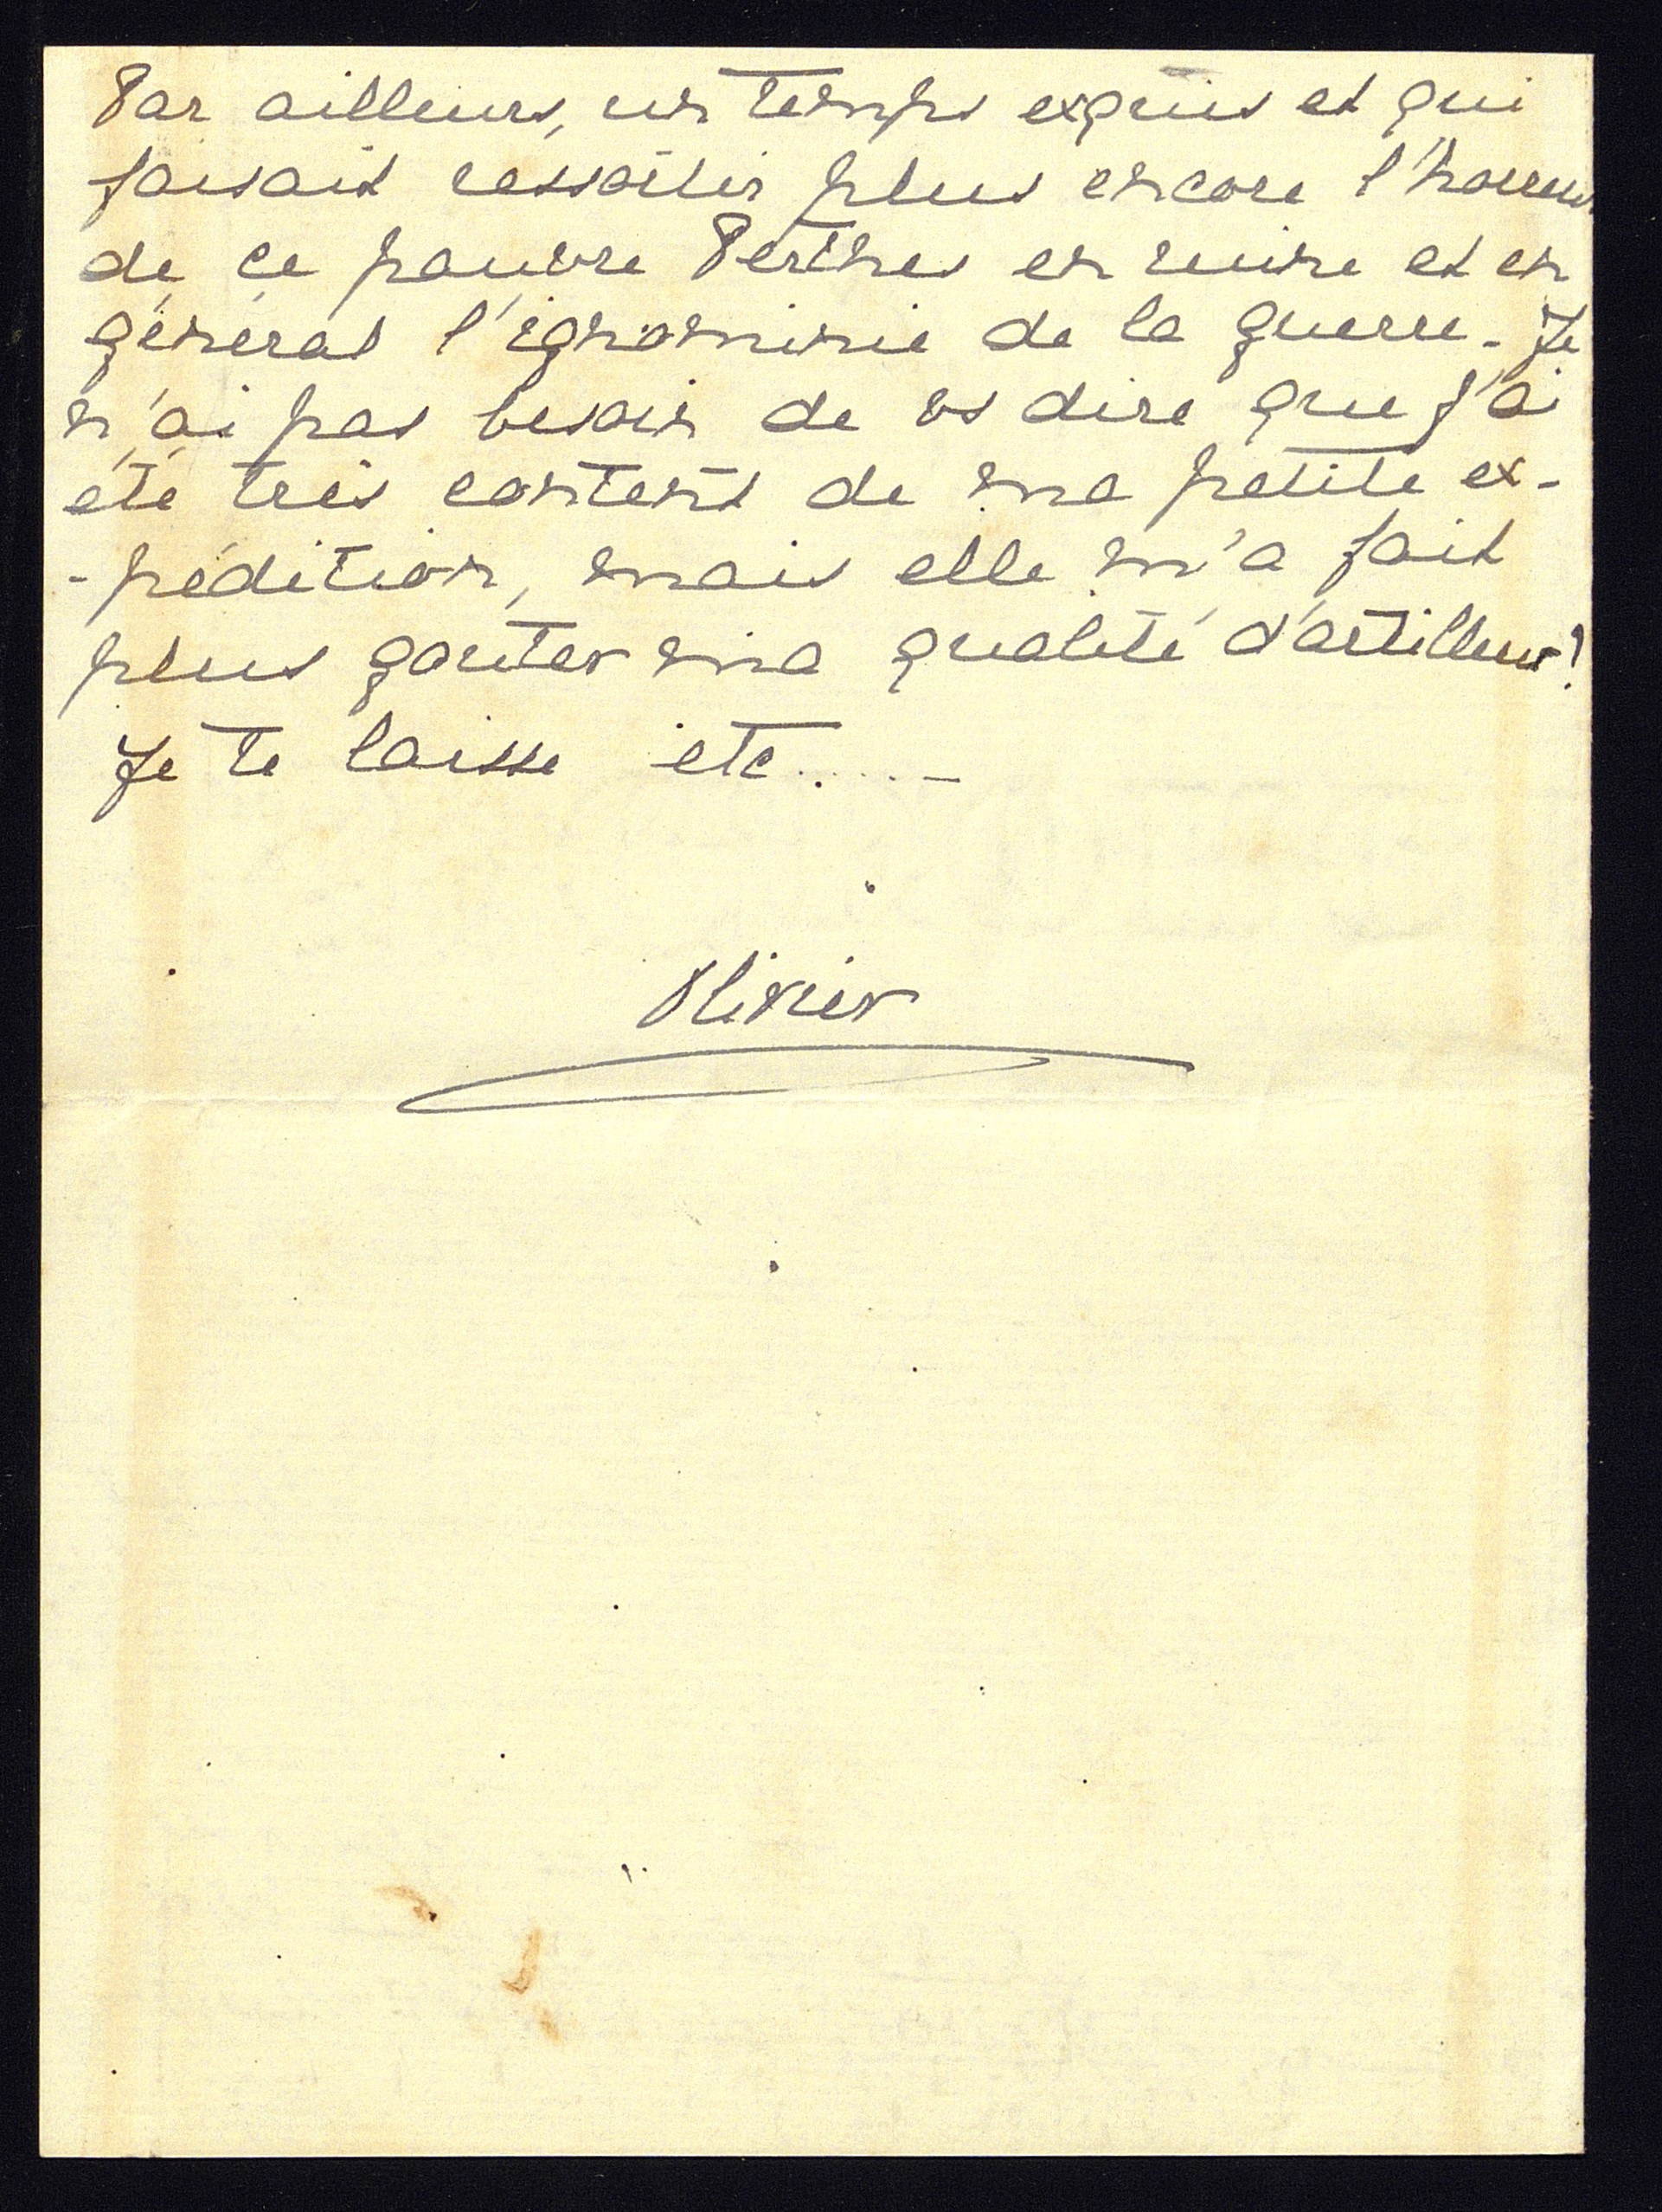 Par ailleurs, un temps exquis et qui
faisait ressortir plus encore l'horreur
de ce pauvre Perthes en ruine et en
général l'ignominie de la guerre. Je
n'ai pas besoin de vs dire que j'ai
été très content de ma petite ex-
-pédition, mais elle m'a fait
plus gouter ma qualité d'artilleur!
Je te laisse etc.....-
Olivier